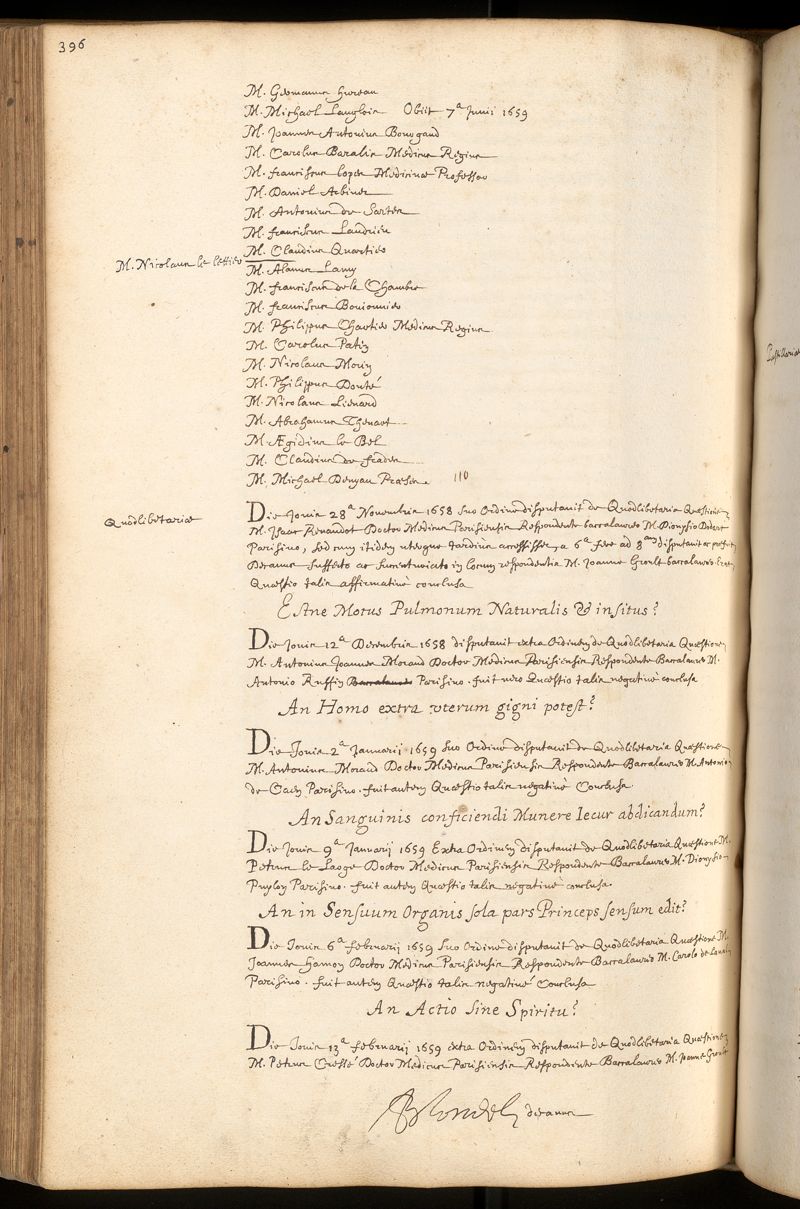 396
M. Germanus Hureau
M. Michael Langlois Obiit 7ª Junii 1659
M. Joannes Antonius Bourgaud
M. Carolus Baralis Medicus Regius
M. franciscus Lopes Medicinæ Professor
M. Daniel Arbinet
M. Antonius de Sarte
M. franciscus Landrieu
M. Claudius Quartier
M. Nicolaus le Lettier
M. Alanus Lamy
M. franciscus de la Chambre
M. franciscus Boujonnier
M. Philippus Chartier Medicus Regius
M. Carolus Patin
M. Nicolaus Morin
M. Philippus Douté
M. Nicolaus Lienard
M. Abrahamus Thevart
M. Ægidius le Bel
M. Claudius de frades
M. Michael Denyau Præses. 110
Quodlibetariæ
Die Jovis 28ª Novembris 1658 suo Ordine disputavit de Quodlibetaria Quæstione
M. Isaac Renaudot Doctor Medicus Parisiensis Respondente baccalaureo M. Dionysio Dodart
Parisino, sed cum itidem uterque tardius accessisset, a 6ª fere ad 8am disputavit
Decanus suffecto ac succenturiato in locum respondentis M. Joanne Groult baccalaureo.
Quæstio talis affirmativè conclusa
Estne Motus Pulmonum Naturalis & insitus?
Die Jovis 12ª Decembris 1658 disputavit extra Ordinem de Quodlibetaria Quæstione
M. Antonius Joannes Morand Doctor Medicus Parisiensis Respondente Baccalaureo M.
Antonio Ruffin Baccalaureo Parisino. fuit vero Quæstio talis negativè conclusa
An Homo extra uterum gigni potest?
Die Jovis 2ª Januarij 1659 suo Ordine disputavit de Quodlibetaria Quæstione
M. Antonius Morand Doctor Medicus Parisiensis Respondente Baccalaureo M. Antonio
de Caen Parisino. fuit autem Quæstio talis negativè Conclusa
An Sanguinis conficiendi Munere Iecur abdicandum?
Die Jovis 9ª Januarij 1659 Extra Ordinem disputavit de Quodlibetaria Quæstione M.
Petrus le Large Doctor Medicus Parisiensis Respondente Baccalaureo M. Dionysio
Puylon Parisino. fuit autem Quæstio talis negativè conclusa.
An in Sensuum Organis sola pars Princeps sensum edit?
Die Jovis 6ª februarij 1659 suo Ordine disputavit de Quodlibetaria Quæstione M.
Joannes Hamon Doctor Medicus Parisiensis Respondente Baccalaureo M. Carolo de
Parisino. fuit autem Quæstio talis negativè Conclusa
An Actio sine Spiritu?
Die Jovis 13ª februarij 1659 extra Ordinem disputavit de Quodlibetaria Quæstione
M. Petrus Cressé Doctor Medicus Parisiensis Respondente Baccalaureo M. Joanne Groult
Blondel decanus